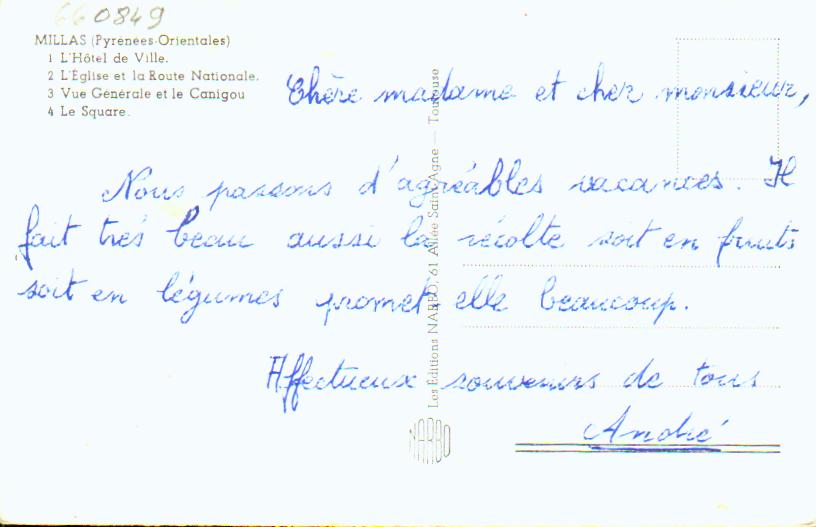 660849
MILLAS (Pyrénées-Orientales)
1 L'Hôtel de Ville.
2 L'Église et la Route Nationale.
3 Vue Générale et le Canigou
4 Le Square.
Chère madame et cher monsieur,
Nous passons d'agréables vacances. Il
fait très beau aussi la récolte soit en fruits
soit en légumes promet elle beaucoup.
Affectueux souvenirs de tous
André
Les Éditions NARBO, 61 Allée Saint-Agne — Toulouse
NARBO